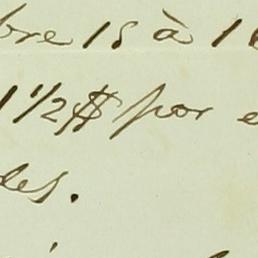 bre 18 à 1
1 1/2 $ por e
des.